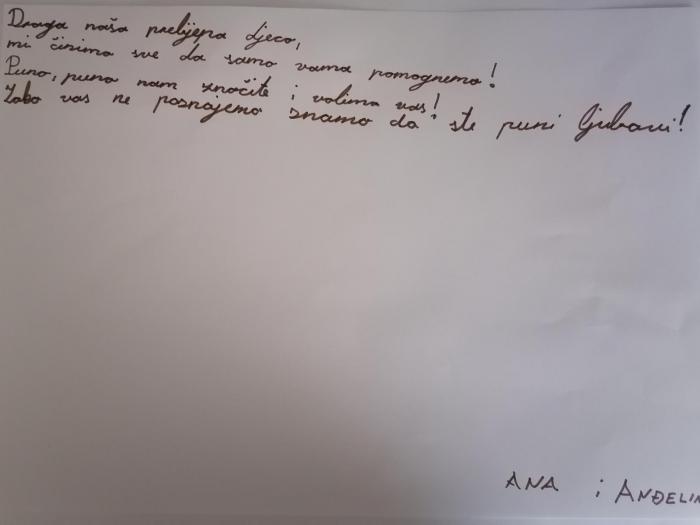 Draga naša prelijepa djeco,
mi činimo sve da samo vama pomognemo!
Puno, puno nam značite i volimo vas!
Iako vas ne poznajemo znamo da ste puni ljubavi!
ANA i ANĐELIN